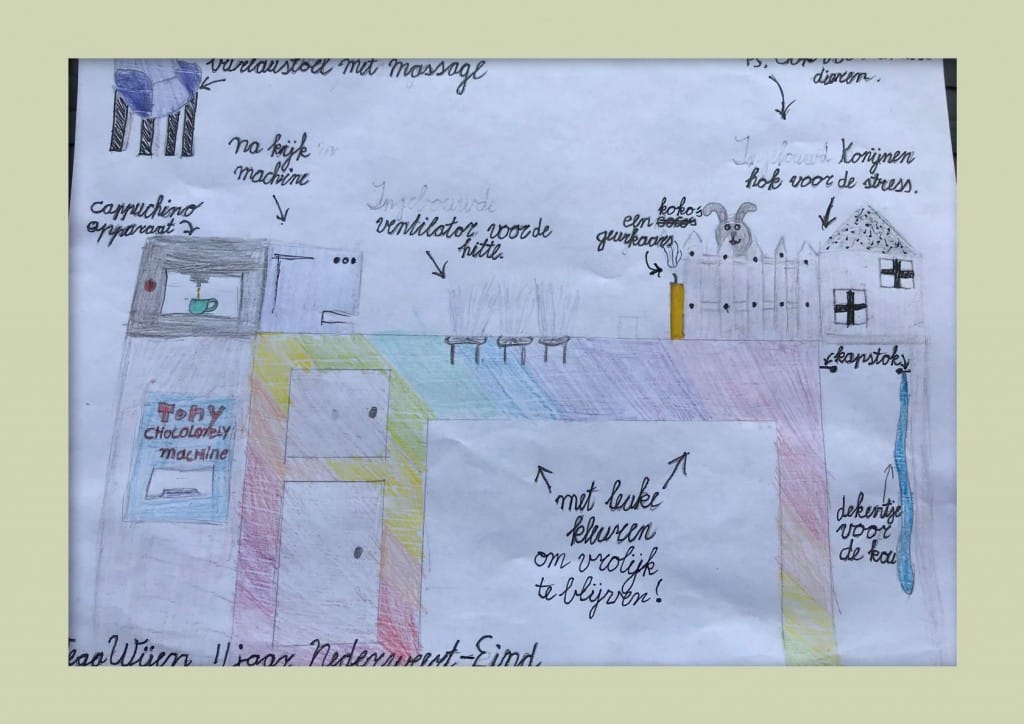 bureaustoel met massage
dieren.
na kijk
machine
Ingebouwd Konijnen
hok voor de stress.
cappuchino
apparaat
Ingebouwde
ventilator voor de
hitte.
een kokos
geurkaars
kapstok
Tony
CHOCOLONELY
machine
met leuke
kleuren
om vrolijk
te blijven!
dekentje
voor
de kou
Wijen 11 jaar Nederweert-Eind